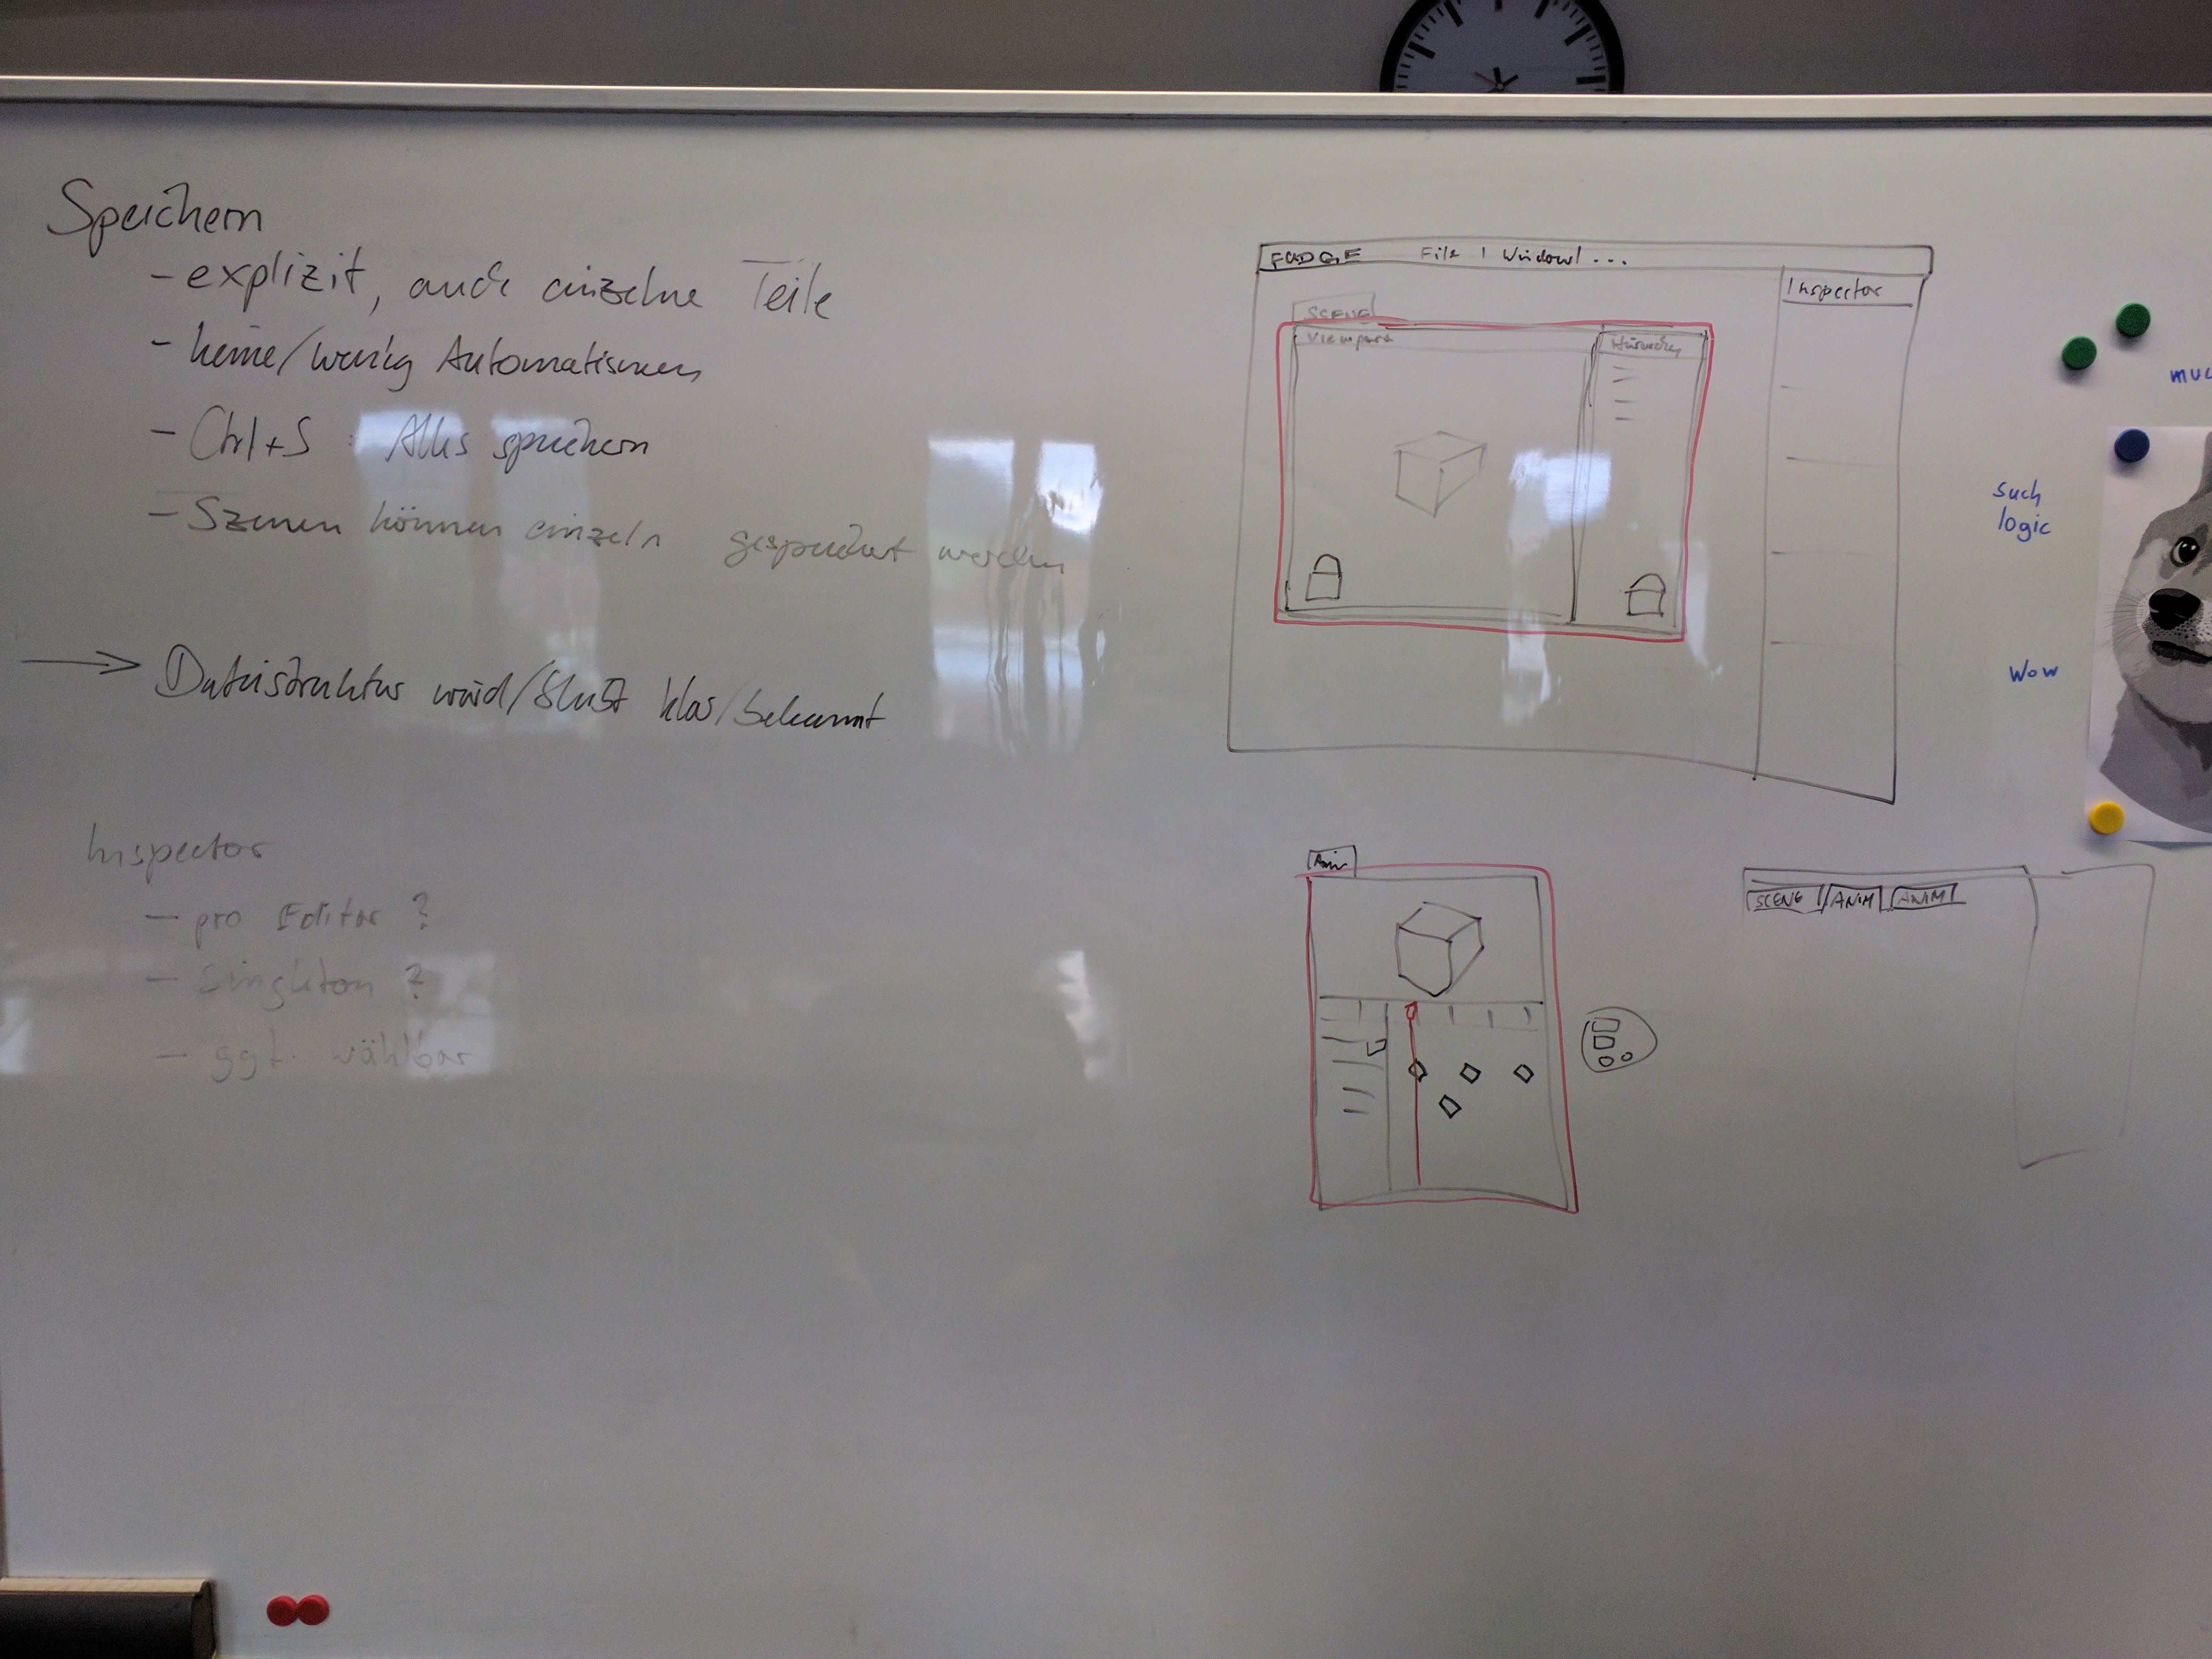 Speichern
- explizit, auch einzelne Teile
- keine/wenig Automatismen
- Ctrl+S : Alles speichern
- Szenen können einzeln gespeichert werden
→ Dateistruktur wird/bleibt klar/bekannt
Inspector
- pro Editor ?
- Singleton ?
- ggf. wählbar
FUDGE File | Window | ...
Inspector
SCENE
Viewport
Hierarchy
Anim
SCENE ANIM ANIM
muc
such
logic
wow